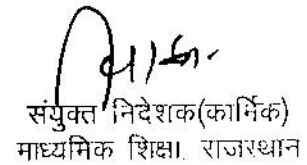 संयुक्त निदेशक(कार्मिक)
माध्यमिक शिक्षा, राजस्थान